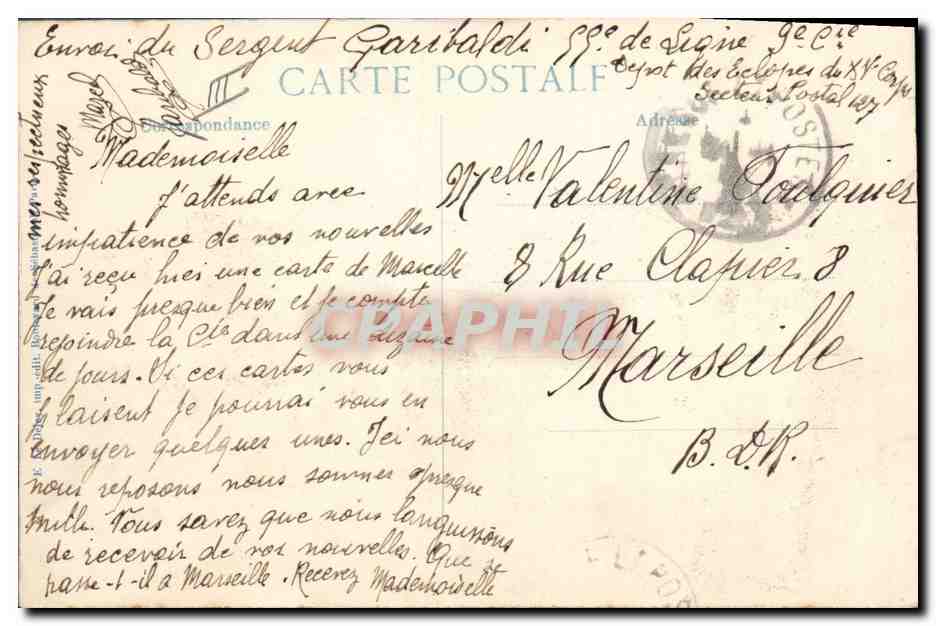 Envoi du Sergent Garibaldi 55e de Ligne 9e Cie
Depot des Eclopés du XVe Corps
Secteur Postal 127
CARTE POSTALE
Correspondance
Adresse
Mademoiselle
J'attends avec
impatience de vos nouvelles
J'ai reçu hier une carte de Marcelle
Je vais presque bien et je compte
rejoindre la Cie dans une dizaine
de jours. Si ces cartes vous
plaisent je pourrai vous en
envoyer quelques unes. Ici nous
nous reposons nous sommes presque
Vous savez que nous languissons
de recevoir de vos nouvelles. Que se
passe-t-il a Marseille. Recevez Mademoiselle
mes respectueux
hommages
Garibaldi
Melle Valentine Foulquier
8 Rue Clapier 8
Marseille
B.D.R.
POSTES
CPAPHIL